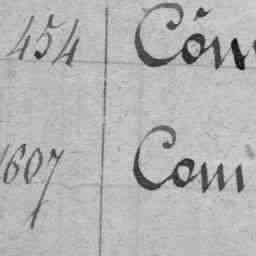 454 Côn
1607 Com